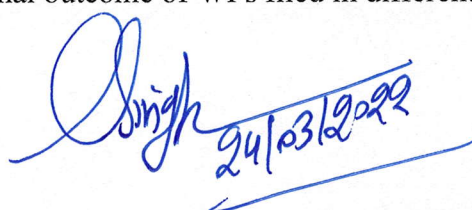 nal outcome of WPs filed in different
Singh
24/03/2022